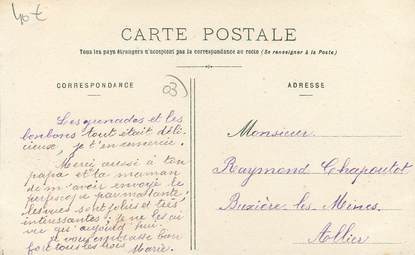 40€
CARTE POSTALE
Tous les pays étrangers n'acceptent pas la correspondance au recto (En renseigner à la Poste)
CORRESPONDANCE
ADRESSE
03
Les grenades et les
bonbons tout était déli-
cieux, je t'en remercie.
Merci aussi à ton
papa et ta maman
de m'avoir envoyé le
les vues sont jolies et très
intéressantes. je ne les ai
vue qu'aujourd'hui
et vous embrasse bien
fort tous les trois
Marie.
Monsieur
Raymond Chapoutot
Buxière les Mines
Allier